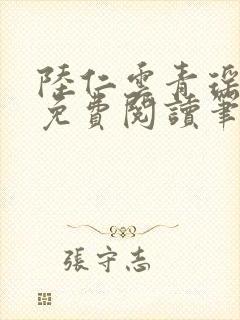 陸仁雲青瑶
免費閱讀筆
張守志